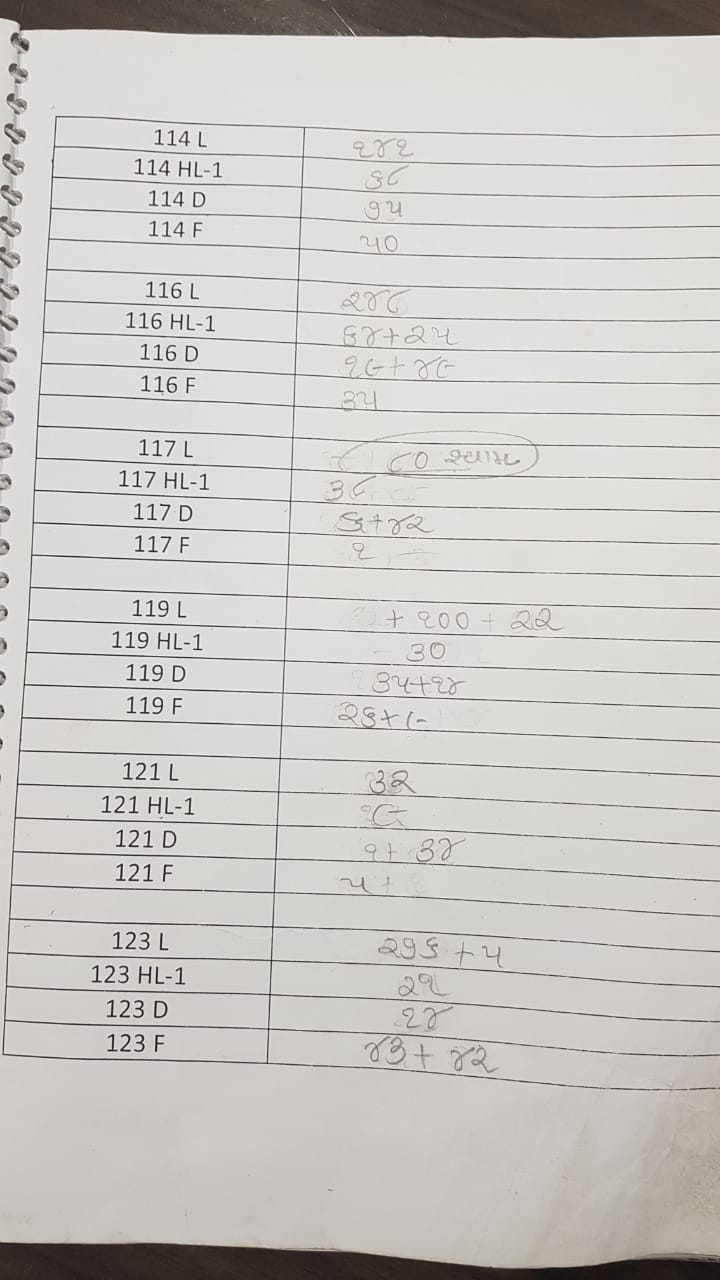 114 L ૧૪૧
114 HL-1 ૬૮
114 D ૭૫
114 F ૫૦
116 L ૨૪૮
116 HL-1 ૬૪+૨૫
116 D ૧૯+૪૯
116 F ૩૫
117 L ૮૦ શ્યામ
117 HL-1 ૩૮
117 D ૬+૪૨
117 F ૧
119 L + ૧૦૦ + ૨૨
119 HL-1 ૩૦
119 D ૩૫+૧૪
119 F ૨૬+૯
121 L ૩૨
121 HL-1 ૯
121 D ૧+ ૩૪
121 F ૫ +
123 L ૨૭૬ + ૫
123 HL-1 ૨૧
123 D ૧૪
123 F ૪૩+ ૪૨